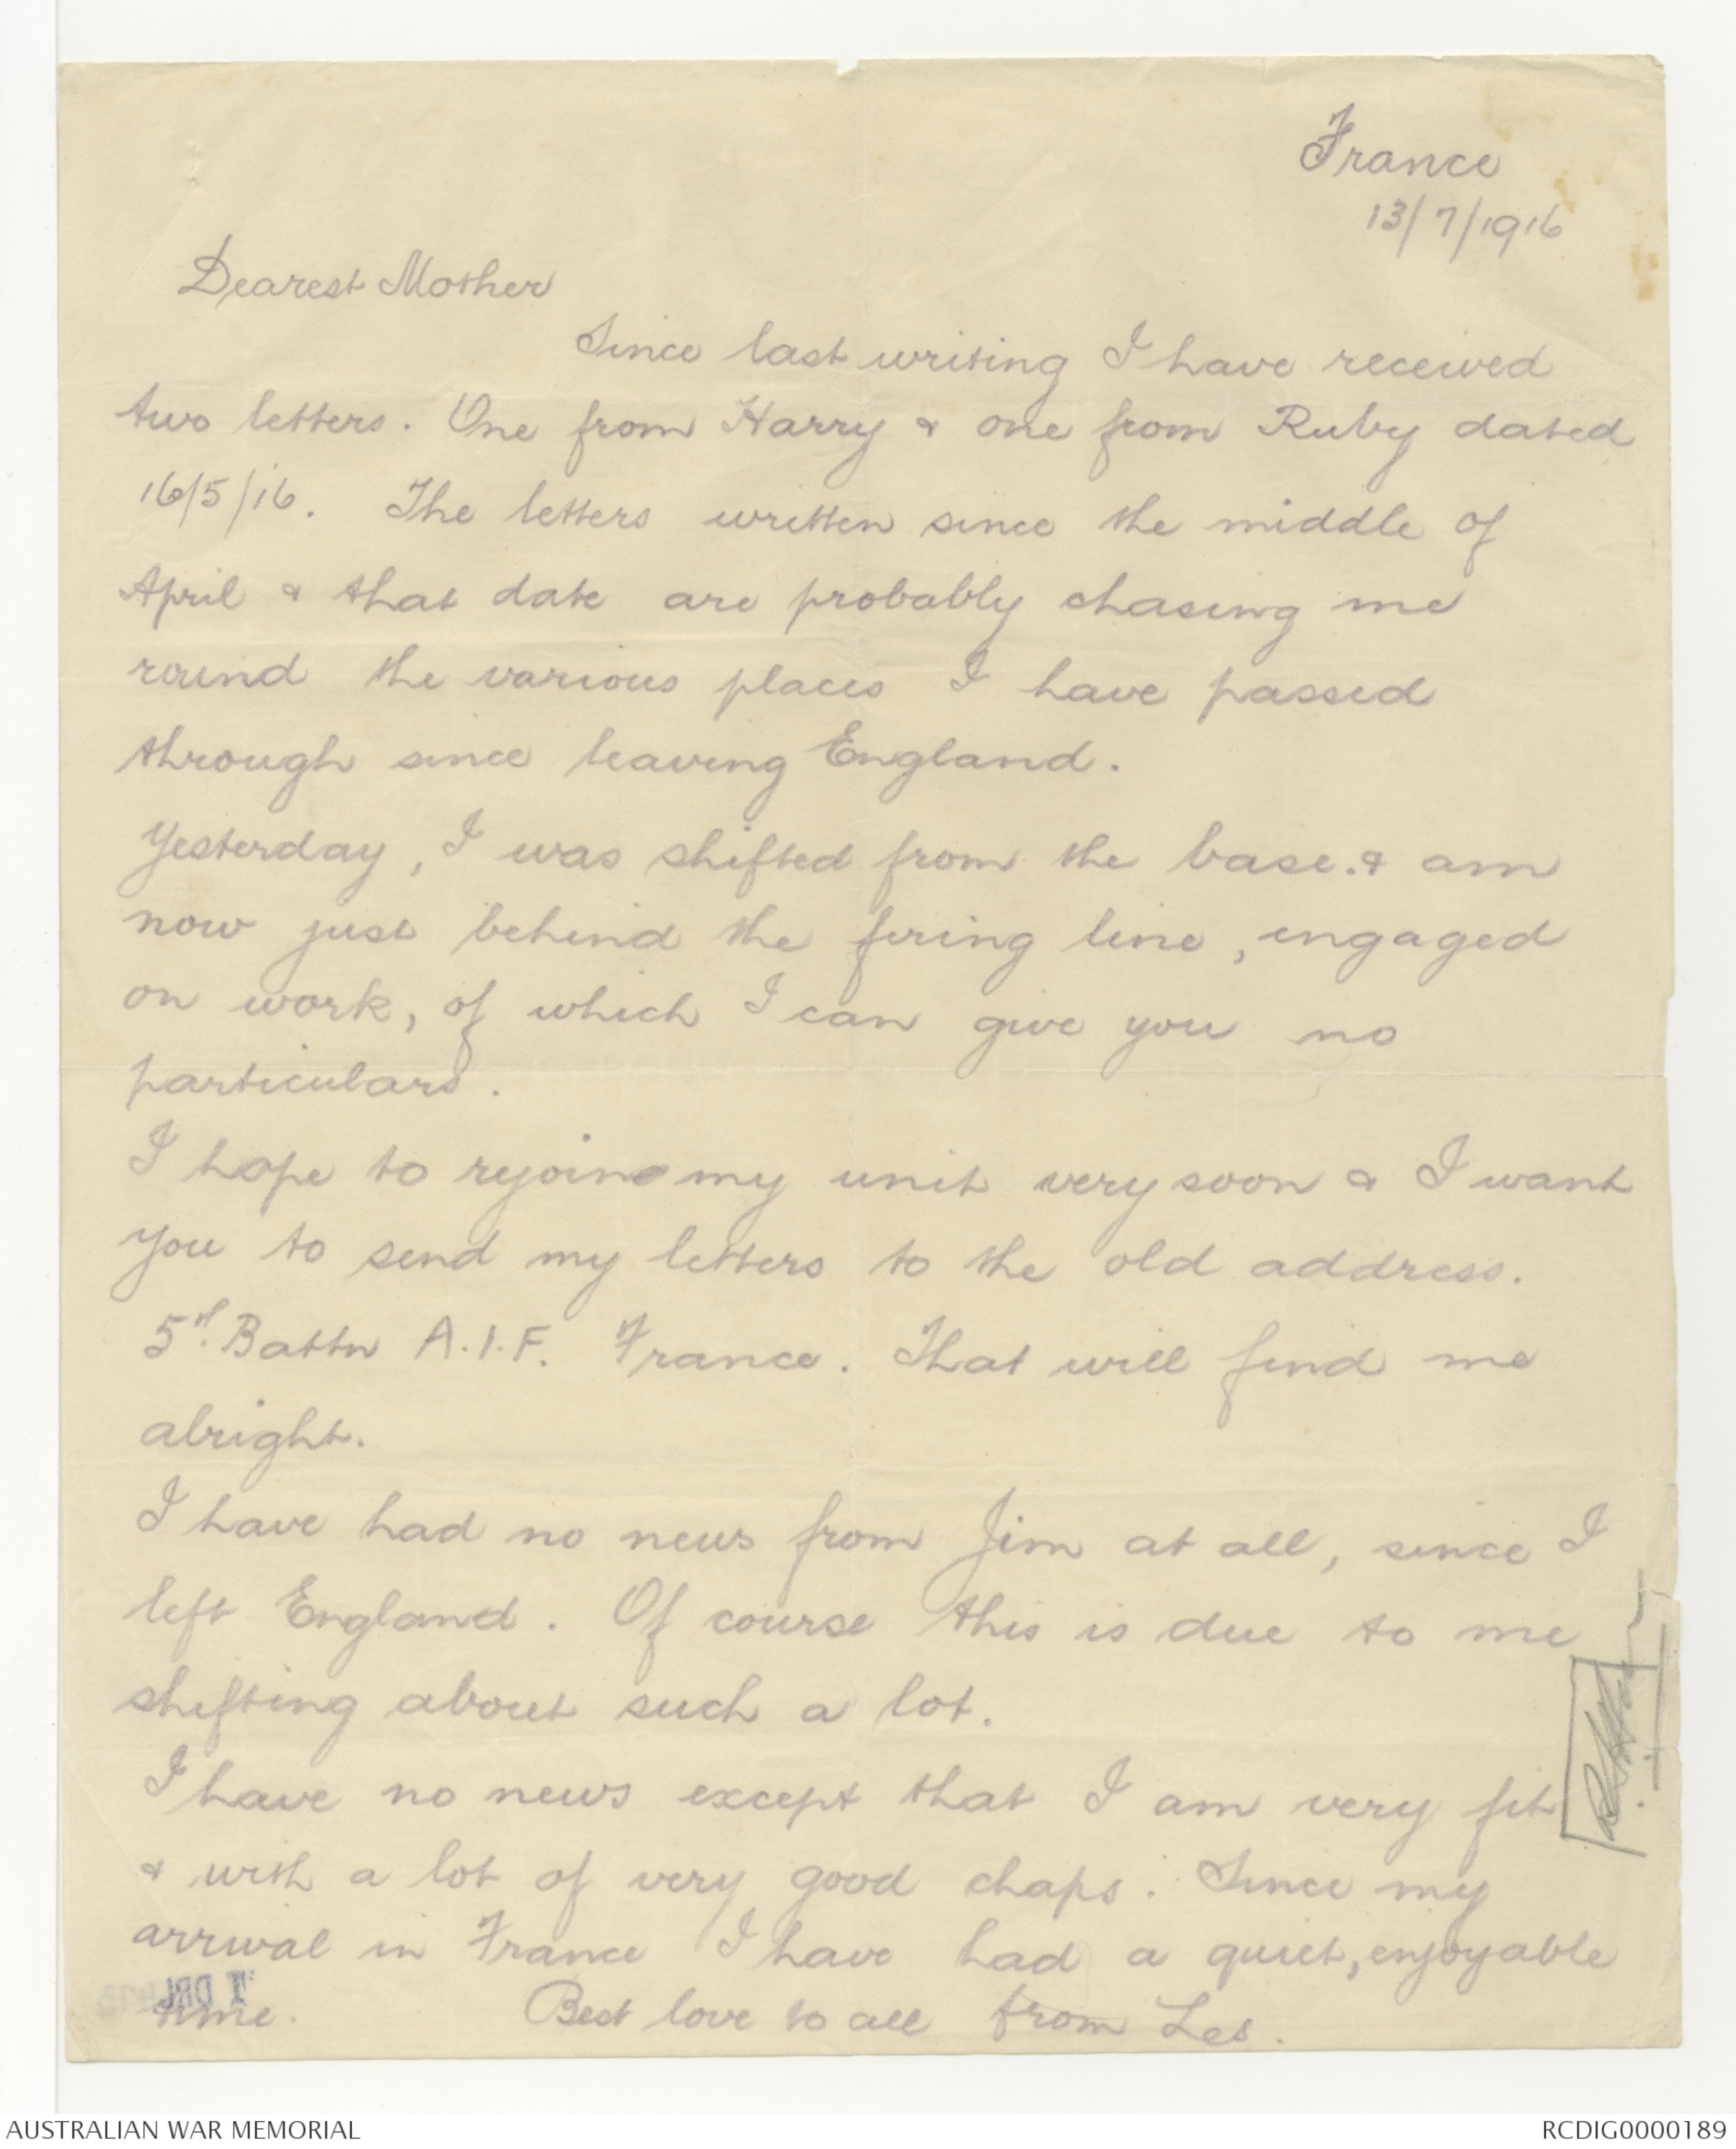 France
13/7/1916
Dearest Mother
Since last writing I have received
two letters. One from Harry & one from Ruby dated
16/5/16. The letters written since the middle of
April & that date are probably chasing me
round the various places I have passed
through since leaving England.
Yesterday, I was shifted from the base. & am
now just behind the firing line, engaged
on work, of which I can give you no
particulars.
I hope to rejoin my unit very soon & I want
you to send my letters to the old address.
5th Battn A.I.F. France. That will find me
alright.
I have had no news from Jim at all, since I
left England. Of course this is due to me
shifting about such a lot.
I have no news except that I am very fit
& with a lot of very good chaps. Since my
arrival in France I have had a quiet, enjoyable
time. Best love to all from Les.
AUSTRALIAN WAR MEMORIAL
RCDIG0000189